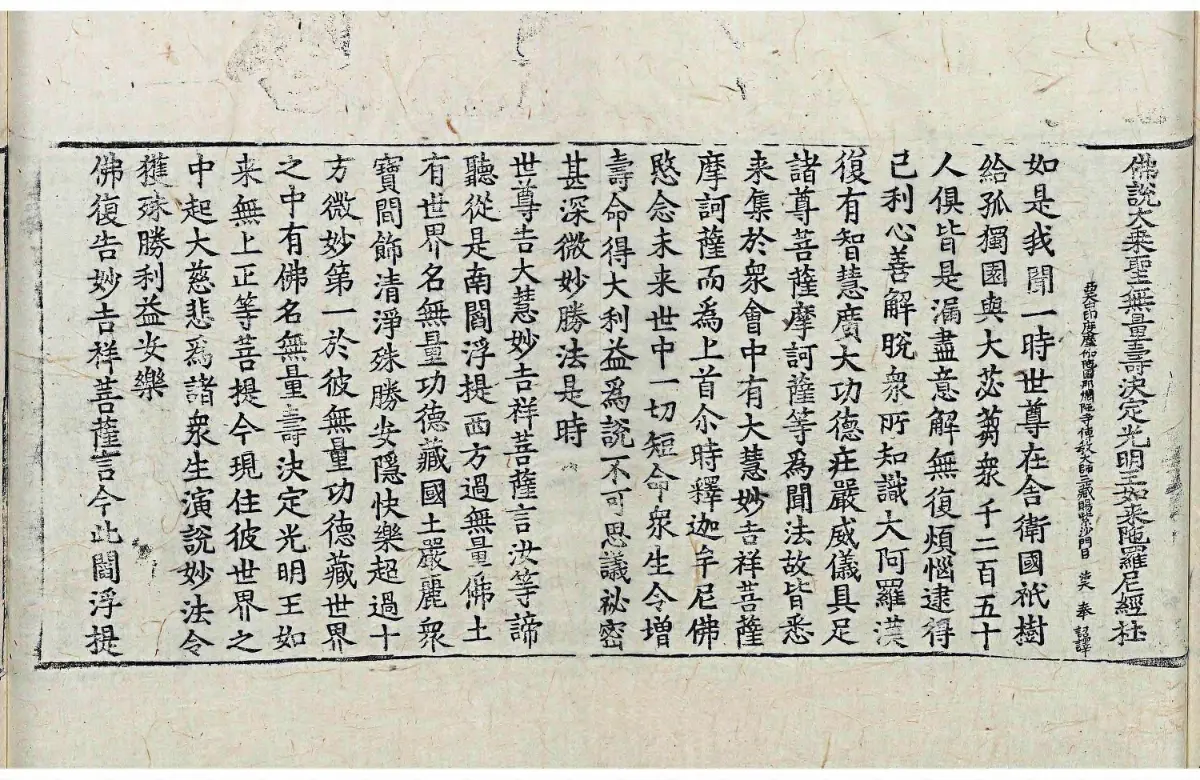 佛說大乘聖無量壽決定光明王如来陀羅尼經杜
摩伽陁國那爛陁寺傳教大師三藏賜紫沙門臣 法天 奉 詔譯
如是我聞一時世尊在舍衛國祇樹
給孤獨園與大苾蒭衆千二百五十
人俱皆是漏盡意解無復煩惱逮得
已利心善解脫衆所知識大阿羅漢
復有智慧廣大功德莊嚴威儀具足
諸尊菩薩摩訶薩等爲聞法故皆悉
来集於衆會中有大慧妙吉祥菩薩
摩訶薩而爲上首尒時釋迦牟尼佛
愍念未来世中一切短命衆生令增
壽命得大利益爲說不可思議祕密
甚深微妙勝法是時
世尊告大慧妙吉祥菩薩言汝等諦
聽從是南閻浮提西方過無量佛土
有世界名無量功德藏國土嚴麗衆
寶間飾清淨殊勝安隱快樂超過十
方微妙第一於彼無量功德藏世界
之中有佛名無量壽決定光明王如
来無上正等菩提今現住彼世界之
中起大慈悲爲諸衆生演說妙法令
獲殊勝利益安樂
佛復告妙吉祥菩薩言今此閻浮提